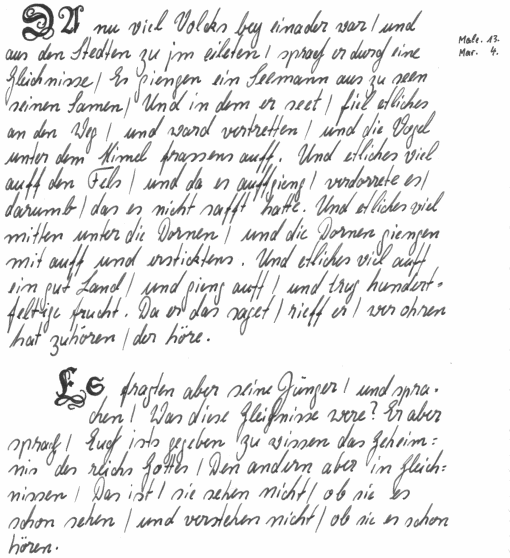 DA nu viel Volcks bey einader war / und
Matt. 13.
aus den Stedten zu jm eileten / sprach er durch eine
Mar. 4.
Gleichnisse / Es giengen ein Seemann aus zu seen
seinen Samen / Und in dem er seet / fiel etliches
an den Weg / und ward vertretten / und die Vogel
unter dem Himel frassens auff. Und etliches viel
auff den Fels / und da es auffgieng / verdorrete es /
darumb / das es nicht safft hatte. Und etliches viel
mitten unter die Dornen / und die Dornen giengen
mit auff und ersticktens. Und etliches viel auff
ein gut Land / und gieng auff / und trug hundert=
feltige frucht. Da er das saget / rieff er / wer ohren
hat zuhören / der höre.
Es fragten aber seine Jünger / und spra-
chen / Was diese Gleichnisse were? Er aber
sprach / Euch ists gegeben zu wissen das geheim=
nis des reichs Gottes / Den andern aber in Gleich=
nissen / Das ist / sie sehen nicht / ob sie es
schon sehen / und verstehen nicht / ob sie es schon
hören.